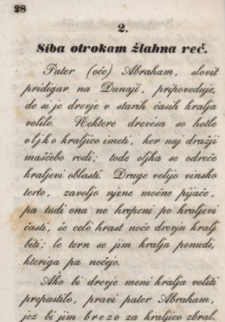 28
2.
Šiba otrokam žlahna reč.
Pater (oče) Abraham, slovit
pridigar na Dunaji, pripoveduje,
de si je drevje v starih časih kralja
volilo. Nektere drevesa so hotle
oljko kraljico imeti, ker naj dražji
maščobo rodi; tode oljka se odreče
kraljevi oblasti. Druge voljjo vinsko
terto, zavoljo njene močne pijače,
pa tudi ona ne hrepeni po kraljevi
časti, še celo hrast noče drevju kralj
biti; le tern se jim kralja ponudi,
kteriga pa nočejo.
Ako bi drevje meni kralja voliti
prepustilo, pravi pater Abraham,
jez bi jim brezo za kraljico zbral.